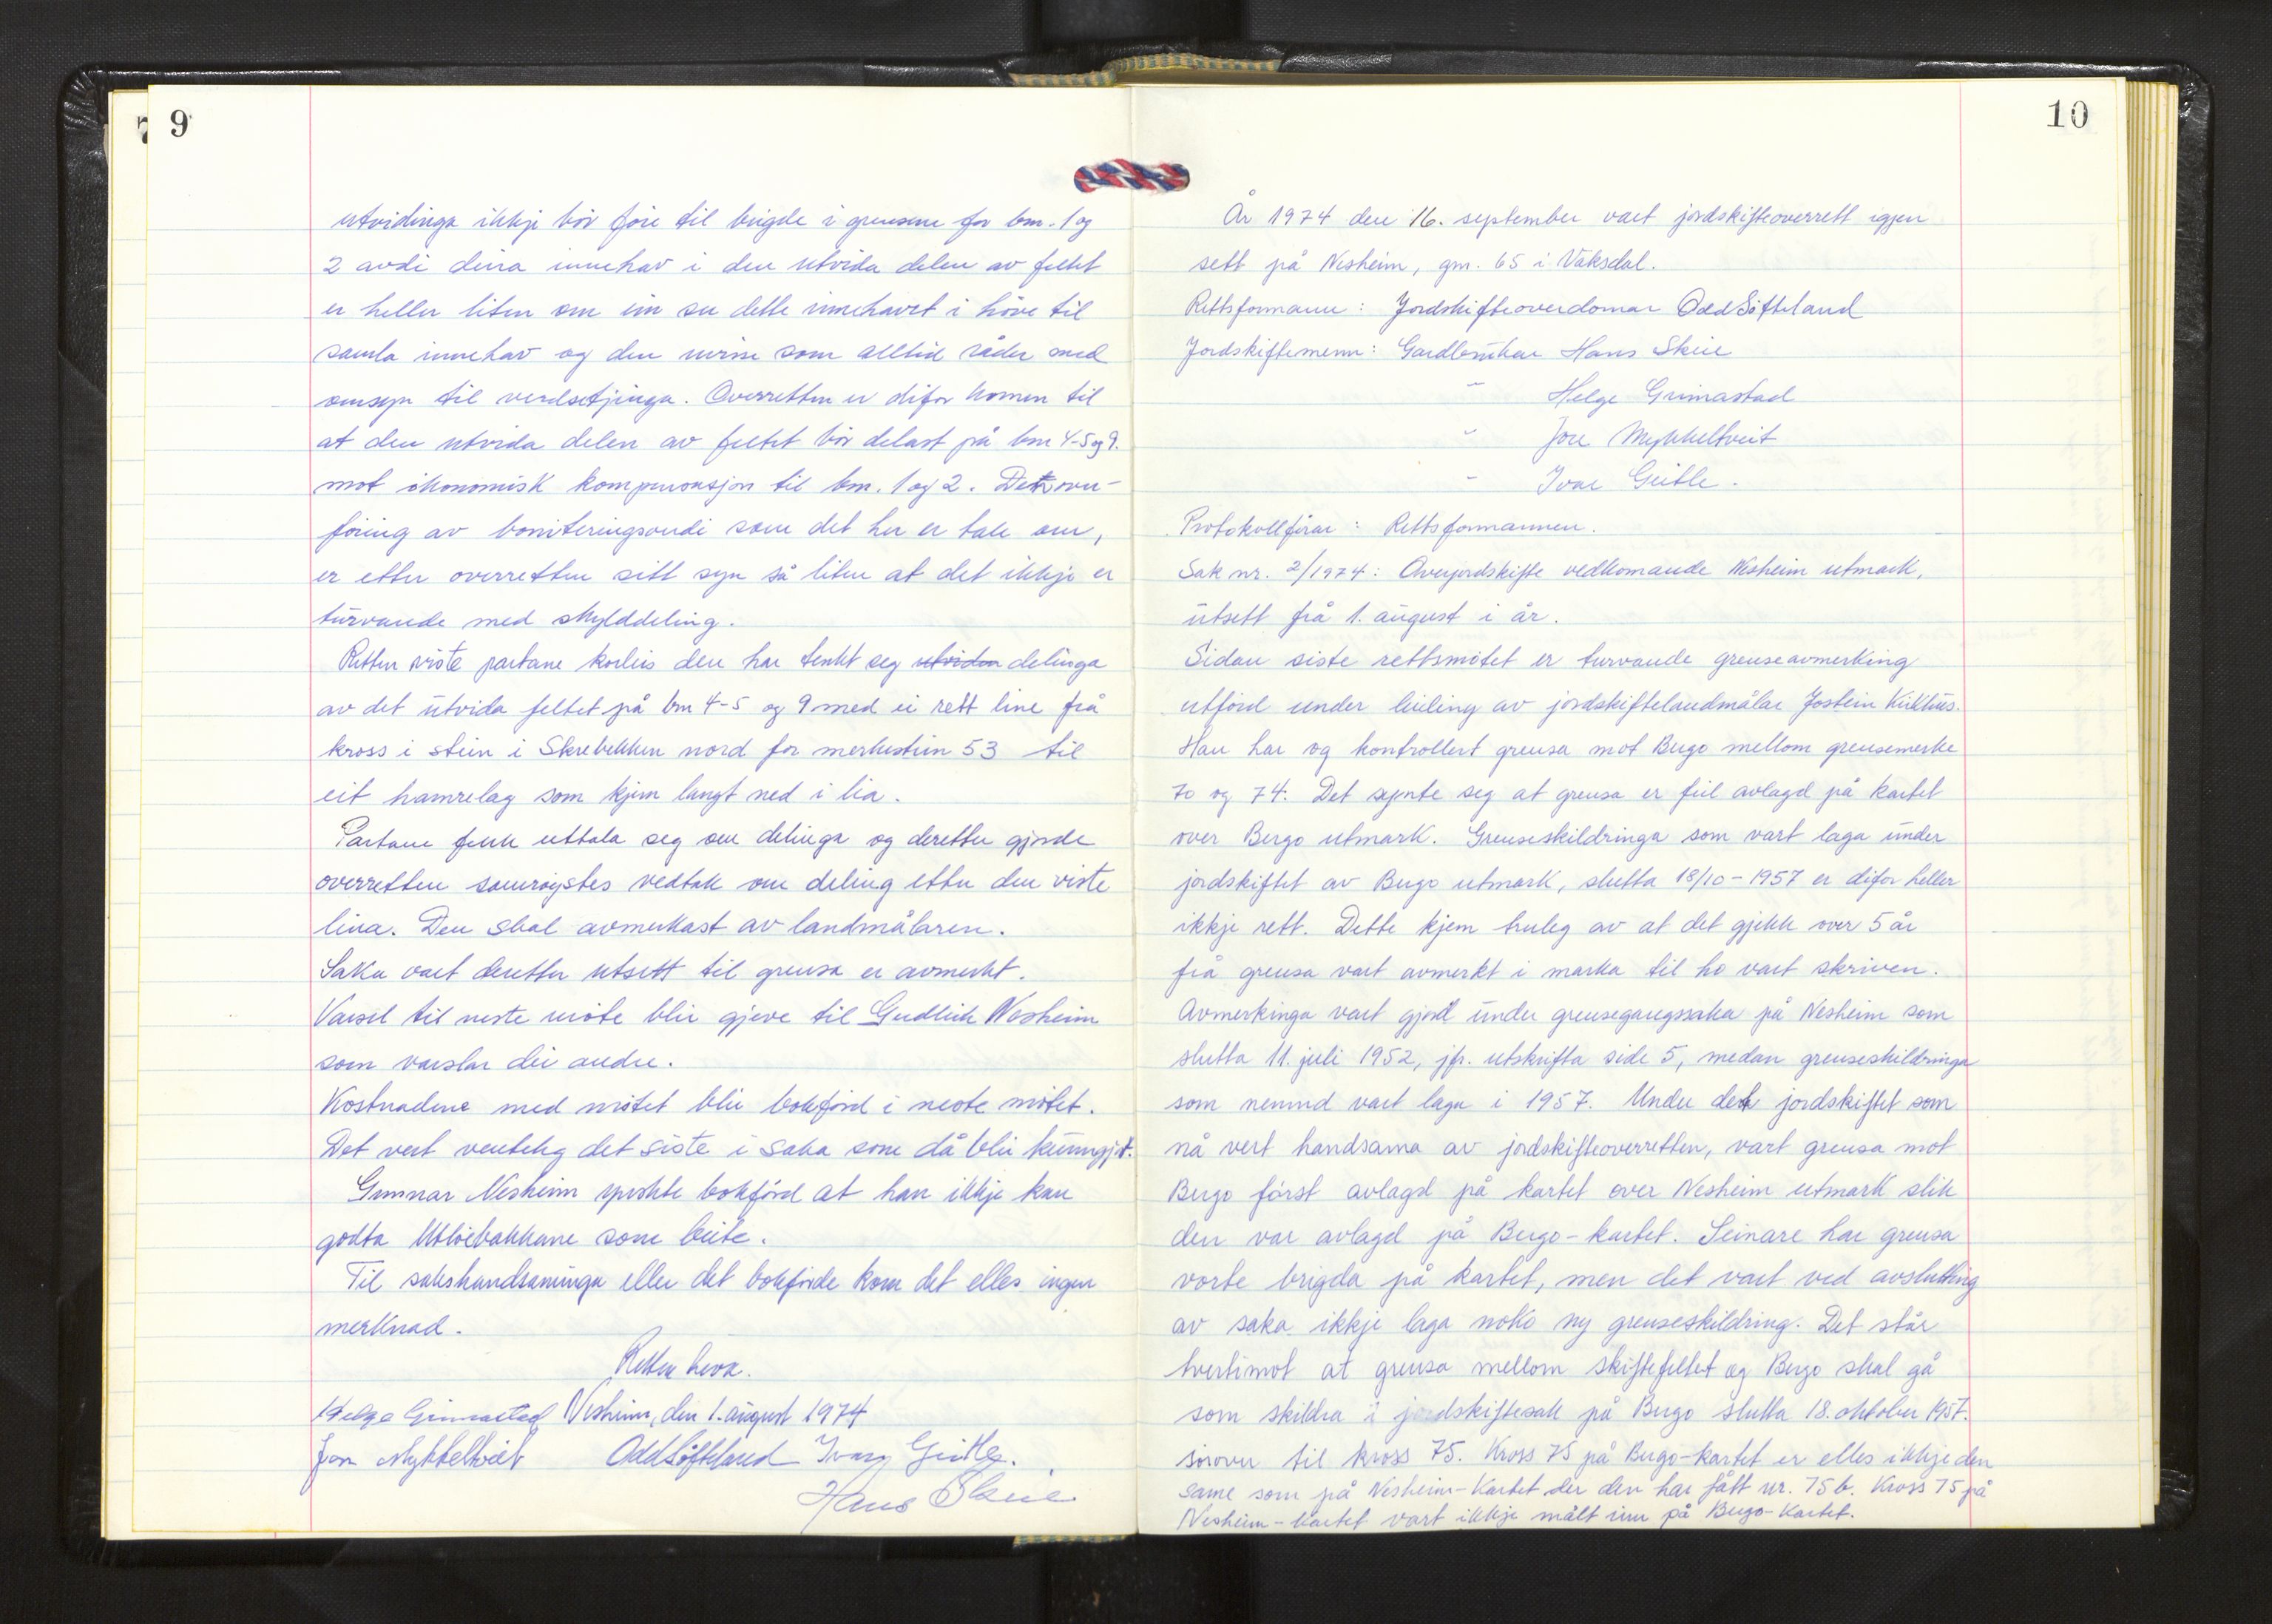 9
utvidinga ikkje bör före til brigde i grensene for bm. 1 og
2 avdi deira innehav i den utvida delen av feltet
er heller liten om ein ser dette innehavet i höve til
samla innehav og den uvisse som alltid råder med
omsyn til verdsetjinga. Overretten er difor komen til
at den utvida delen av feltet bör delast på bm 4-5 og 9.
mot ökonomisk kompensasjon til bm. 1 og 2. Den over-
föring av boniteringsverdi som det her er tale om,
er etter overretten sitt syn så liten at det ikkje er
turvande med skylddeling.
Retten viste partane korleis den har tenkt seg utvidon delinga
av det utvida feltet på bm 4-5 og 9 med ei rett line frå
kross i stein i Skrebekken nord for merkestein 53 til
eit hamrelag som kjem langt ned i lia.
Partane fekk uttala seg om delinga og deretter gjorde
overretten samröystes vedtak om deling etter den viste
lina. Den skal avmerkast av landmålaren.
Saka vart deretter utsett til grensa er avmerkt.
Varsel til neste möte blir gjeve til Gudleik Nesheim
som varslar dei andre.
Kostnadene med mötet blir bokförd i neste mötet.
Det vert venteleg det siste i saka som då blir kunngjort.
Gunnar Nesheim ynskte bokförd at han ikkje kan
godta Utlöebakkane som beite.
Til sakshandsaminga eller det bokförde kom det elles ingen
merknad.
Retten heva.
Nesheim, den 1. august 1974
Helge Grimastad
Jon Mykkeltveit Odd Söfteland Ivar Geitle.
Hans Skeie
10
År 1974 den 16. september vart jordskifteoverrett igjen
sett på Nesheim, gnr. 65 i Vaksdal.
Rettsformann: Jordskifteoverdomar Odd Söfteland
Jordskiftemenn: Gardbrukar Hans Skeie
" Helge Grimastad
" Jon Mykkeltveit
" Ivar Geitle.
Protokollförar: Rettsformannen.
Sak nr. 2/1974: Overjordskifte vedkomande Nesheim utmark,
utsett frå 1. august i år.
Sidan siste rettsmötet er turvande grenseavmerking
utförd under leiing av jordskiftelandmålar Jostein
Han har og kontrollert grensa mot Bergo mellom grensemerke
70 og 74. Det synte seg at grensa er feil avlagd på kartet
over Bergo utmark. Grenseskildringa som vart laga under
jordskiftet av Bergo utmark, slutta 18/10-1957 er difor heller
ikkje rett. Dette kjem truleg av at det gjekk over 5 år
frå grensa vart avmerkt i marka til ho vart skriven.
Avmerkinga vart gjord under grensegangssaka på Nesheim som
slutta 11. juli 1952, jfr. utskrifta side 5, medan grenseskildringa
som nemnd vart laga i 1957. Under det jordskiftet som
nå vert handsama av jordskifteoverretten, vart grensa mot
Bergo först avlagd på kartet over Nesheim utmark slik
den var avlagd på Bergo-kartet. Seinare har grensa
vorte brigda på kartet, men det vart ved avslutting
av saka ikkje laga noko ny grenseskildring. Det står
tvertimot at grensa mellom skiftefeltet og Bergo skal gå
som skildra i jordskiftesak på Bergo slutta 18. oktober 1957.
sörover til kross 75. Kross 75 på Bergo-kartet er elles ikkje den
same som på Nesheim-kartet der den har fått nr. 75b. Kross 75 på
Nesheim-kartet vart ikkje målt inn på Bergo-kartet.